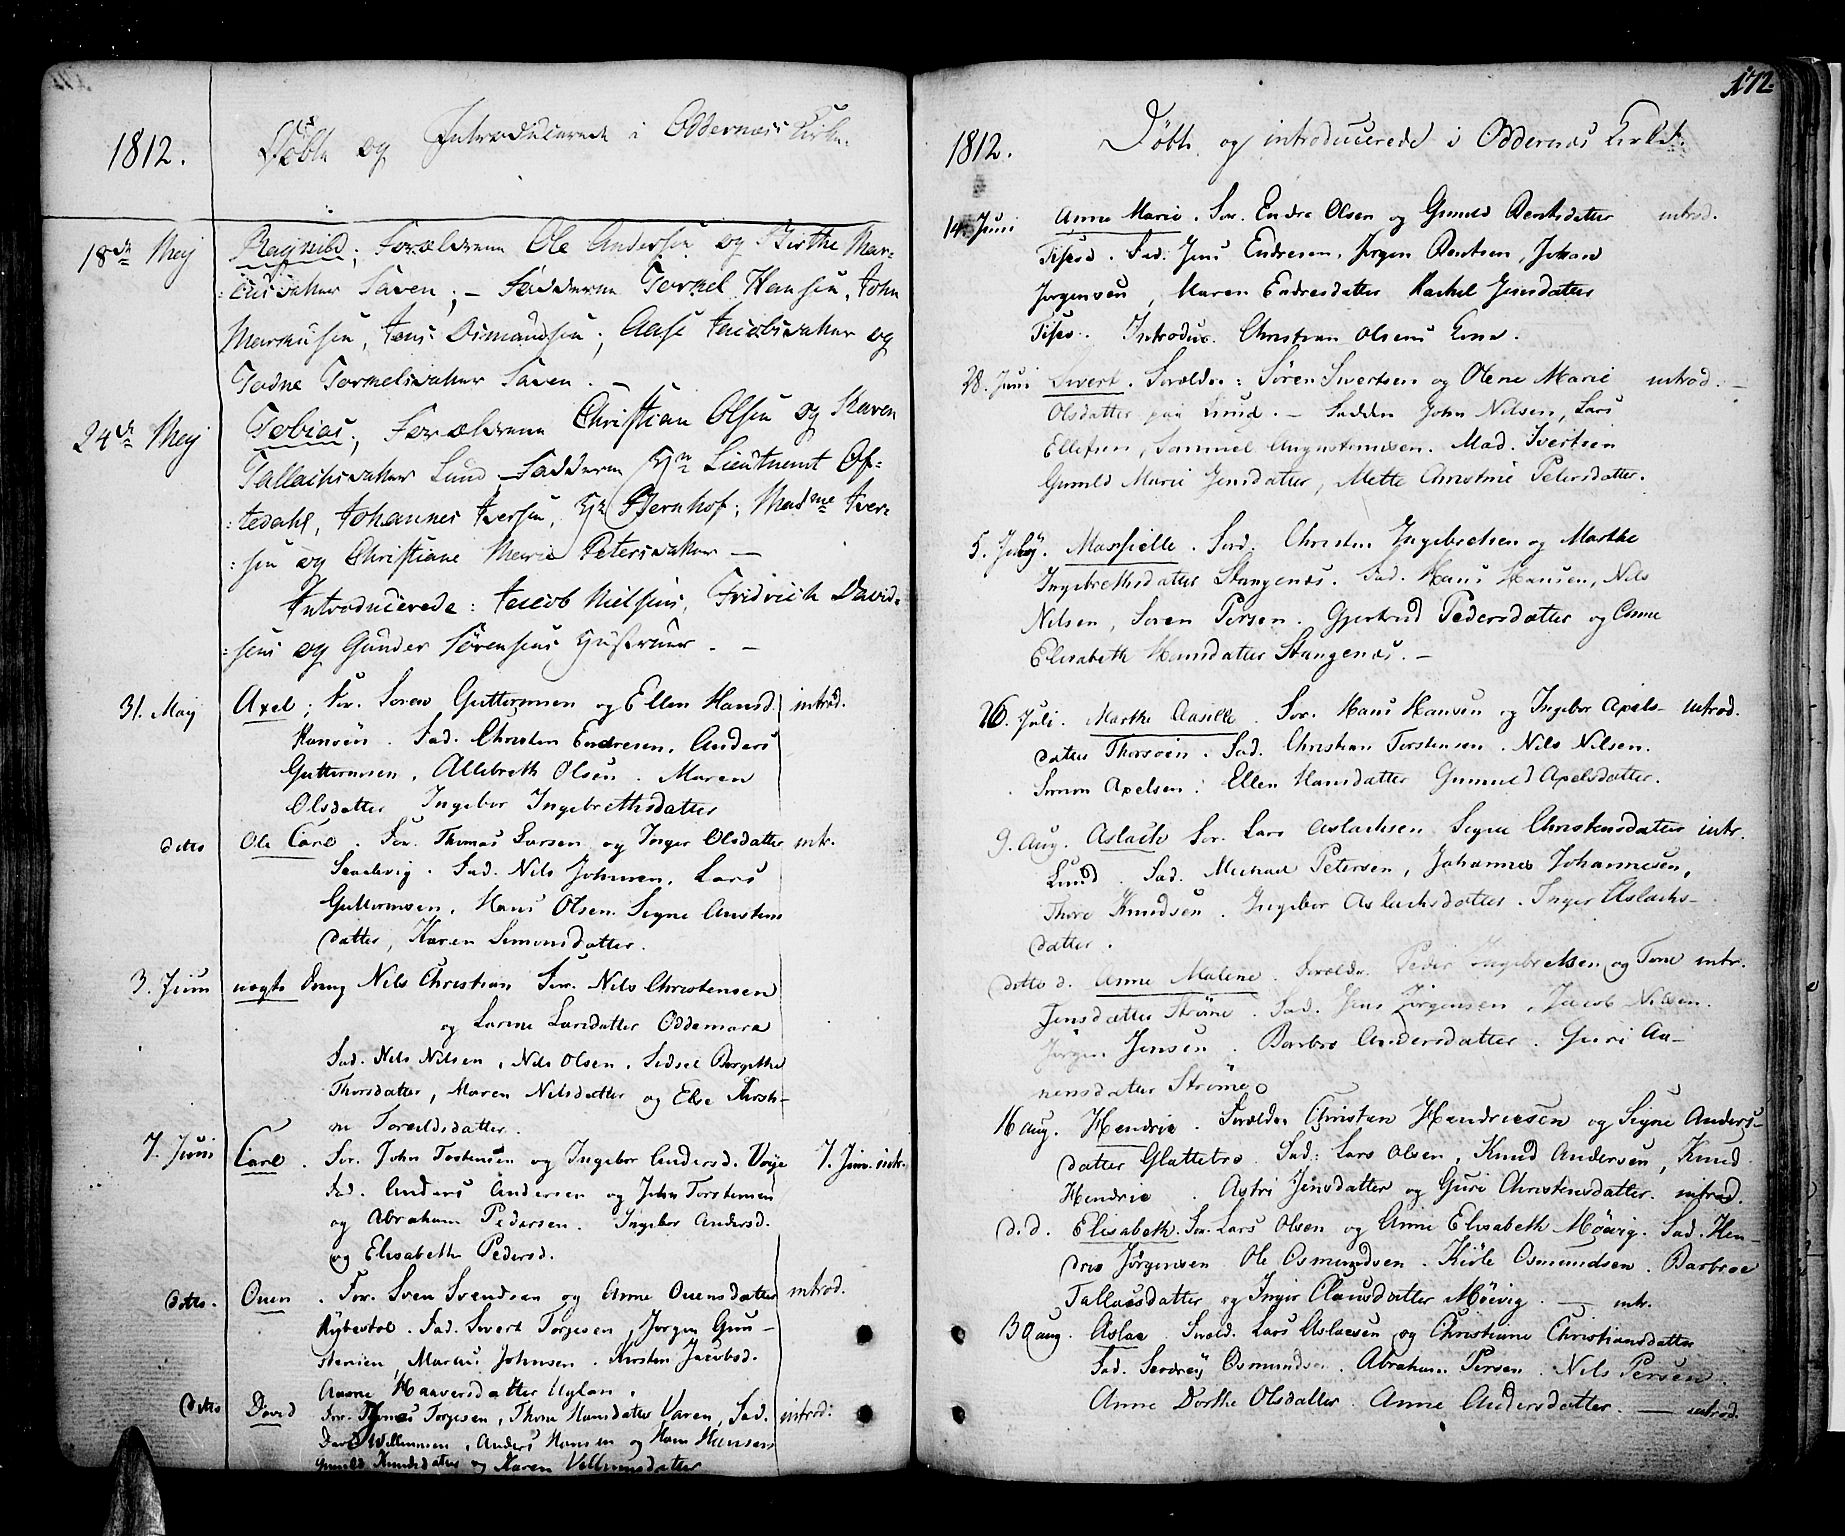 1812. Döbte og Introducerede i Oddernæs Kirke.
18de Maj Ragnild; Forældrene Ole Andersen og Birthe Mar-
:cusdatter Saven; – Fadderne Tormel Hansen, John
Marcussen, Jens Osmundsen; Aase Jacobsdatter og
Todne Tormelsdatter Saven. –
24de Maj Tobias; Forældrene Christian Olsen og Karen
Tallachsdatter Lund, Fadderne Hr Lieutnant Of-
:tedahl, Johannes Iversen, Hr Bernhof; Madme Iver-
:sen og Christiane Marie Petersdatter –
Introducerede: Jacob Nielsens, Fridrich David-
:sens og Gunder Sörensens Hustruer. –
31. May Axel; For. Soren Guttormsen og Ellen Hansd. introd.
Ransöen. Fad. Christen Endresen, Anders
Guttormsen, Allebreth Olsen. Maren
Olsdatter Ingebor Ingebrethsdatter
ditto Ole Carl. For. Thomas Larsen og Inger Olsdatter intr.
Fad. Nils Johnsen, Lars
Guttormsen, Hans Olsen. Signe
datter, Karen Simonsdatter.
3. Juni uægte Dreng Nils Christian For. Nils Christensen
og Larsdatter Oddemarck
Fad. Nils Nilsen, Nils Olsen, Sidsel Birgithe
Thorsdatter, Maren Nilsdatter og Else Kirsti-
ne Toreildsdatter.
7. Juni Carl. For. John Tostensen og Ingebor Andersd. Voye 7. Jun. intr.
Fad. Anders Andersen og John Torstensen
og Abraham Pedersen. Ingebor Andersd.
og Elisabeth Pedersd.
ditto. Ouen. For. Sven Svendsen og Anne Ouensdatter introd.
Fad. Sivert Torjesen, Jorgen Gun-
Marcus Johnsen. Kirsten Jacobsd.
Haaversdatter Uglan.
ditto David For. Torjesen, Thone Hansdatter Varen, Fad. introd:
David Willumsen, Anders Hansen og Hans Hansen
Gunild Knudsdatter og Karen Vellumsdatter
172.
1812. Döbte og introducerede i Oddernæs Kirke.
14. Juni Anne Marie. For. Endre Olsen og Gunild Berntsdatter introd.
Fad. Jens Endresen, Jörgen Berntsen, Johan
Jorgensen, Maren Endresdatter Rachel Jensdatter
Introduc. Christian Olsens Kone.
28. Juni Sivert. Forældre: Sören Sivertsen og Olene Marie introd. –
Olsdatter paa Lund. – Faddre John Nilsen, Lars
Ellefsen, Samuel Augustinusen. Mad. Ivertsen
Gunild Marie Jensdatter, Mette Christine Petersdatter.
5. July. Massielle. For. Christen Ingebretsen og Marthe
Ingebrethsdatter Stangenæs. Fad. Hans Hansen, Nils
Nilsen, Soren Persen. Gjertrud Pedersdatter og Anne
Elisabeth Hansdatter Stangenæs. –
26. Juli. Marthe Aasille. For. Hans Hansen og Ingebor Axels- introd.
datter Thorsöen. Fad. Christian Torstensen. Nils Nilsen.
Simon Axelsen: Ellen Hansdatter Gunuld Axelsdatter.
9. Aug. Aslach For. Lars Aslachsen Signe Christensdatter intr.
Lund. Fad. Michael Petersen, Johannes Johannesen,
Thore Knudsen. Ingebor Aslachsdatter. Inger Aslachs-
datter.
ditto d. Anne Malene. Forældr. Peder Ingebretsen og Tone intr.
Jensdatter Ströme. Fad. Jens Jörgensen, Jacob Nilsen.
Jörgen Jensen. Barbro Andersdatter. Guri Aa-
nensdatter Ströme
16 aug. Hendric. Forældre Christen Hendricsen og Signe Anders-
datter Glattetre. Fad: Lars Olsen, Knud Andersen, Knud
Hendric. Astri Jensdatter og Guri Christensdatter. introd.
d. d. Elisabeth. For. Lars Olsen og Anne Elisabeth Möevig. Fad. Hen-
dric Jörgensen Ole Osmundsen. Kiöle Osmundsen. Barbroe
Tallacsdatter og Inger Clausdatter Möivig. – intr.
30 aug. Aslac. Foræld. Lars Aslacsen og Christiane Christiansdatter
Fad. Osmundsen. Abraham Persen. Nils Persen.
Anne Dorthe Olsdatter. Anne Andersdatter. – introd.